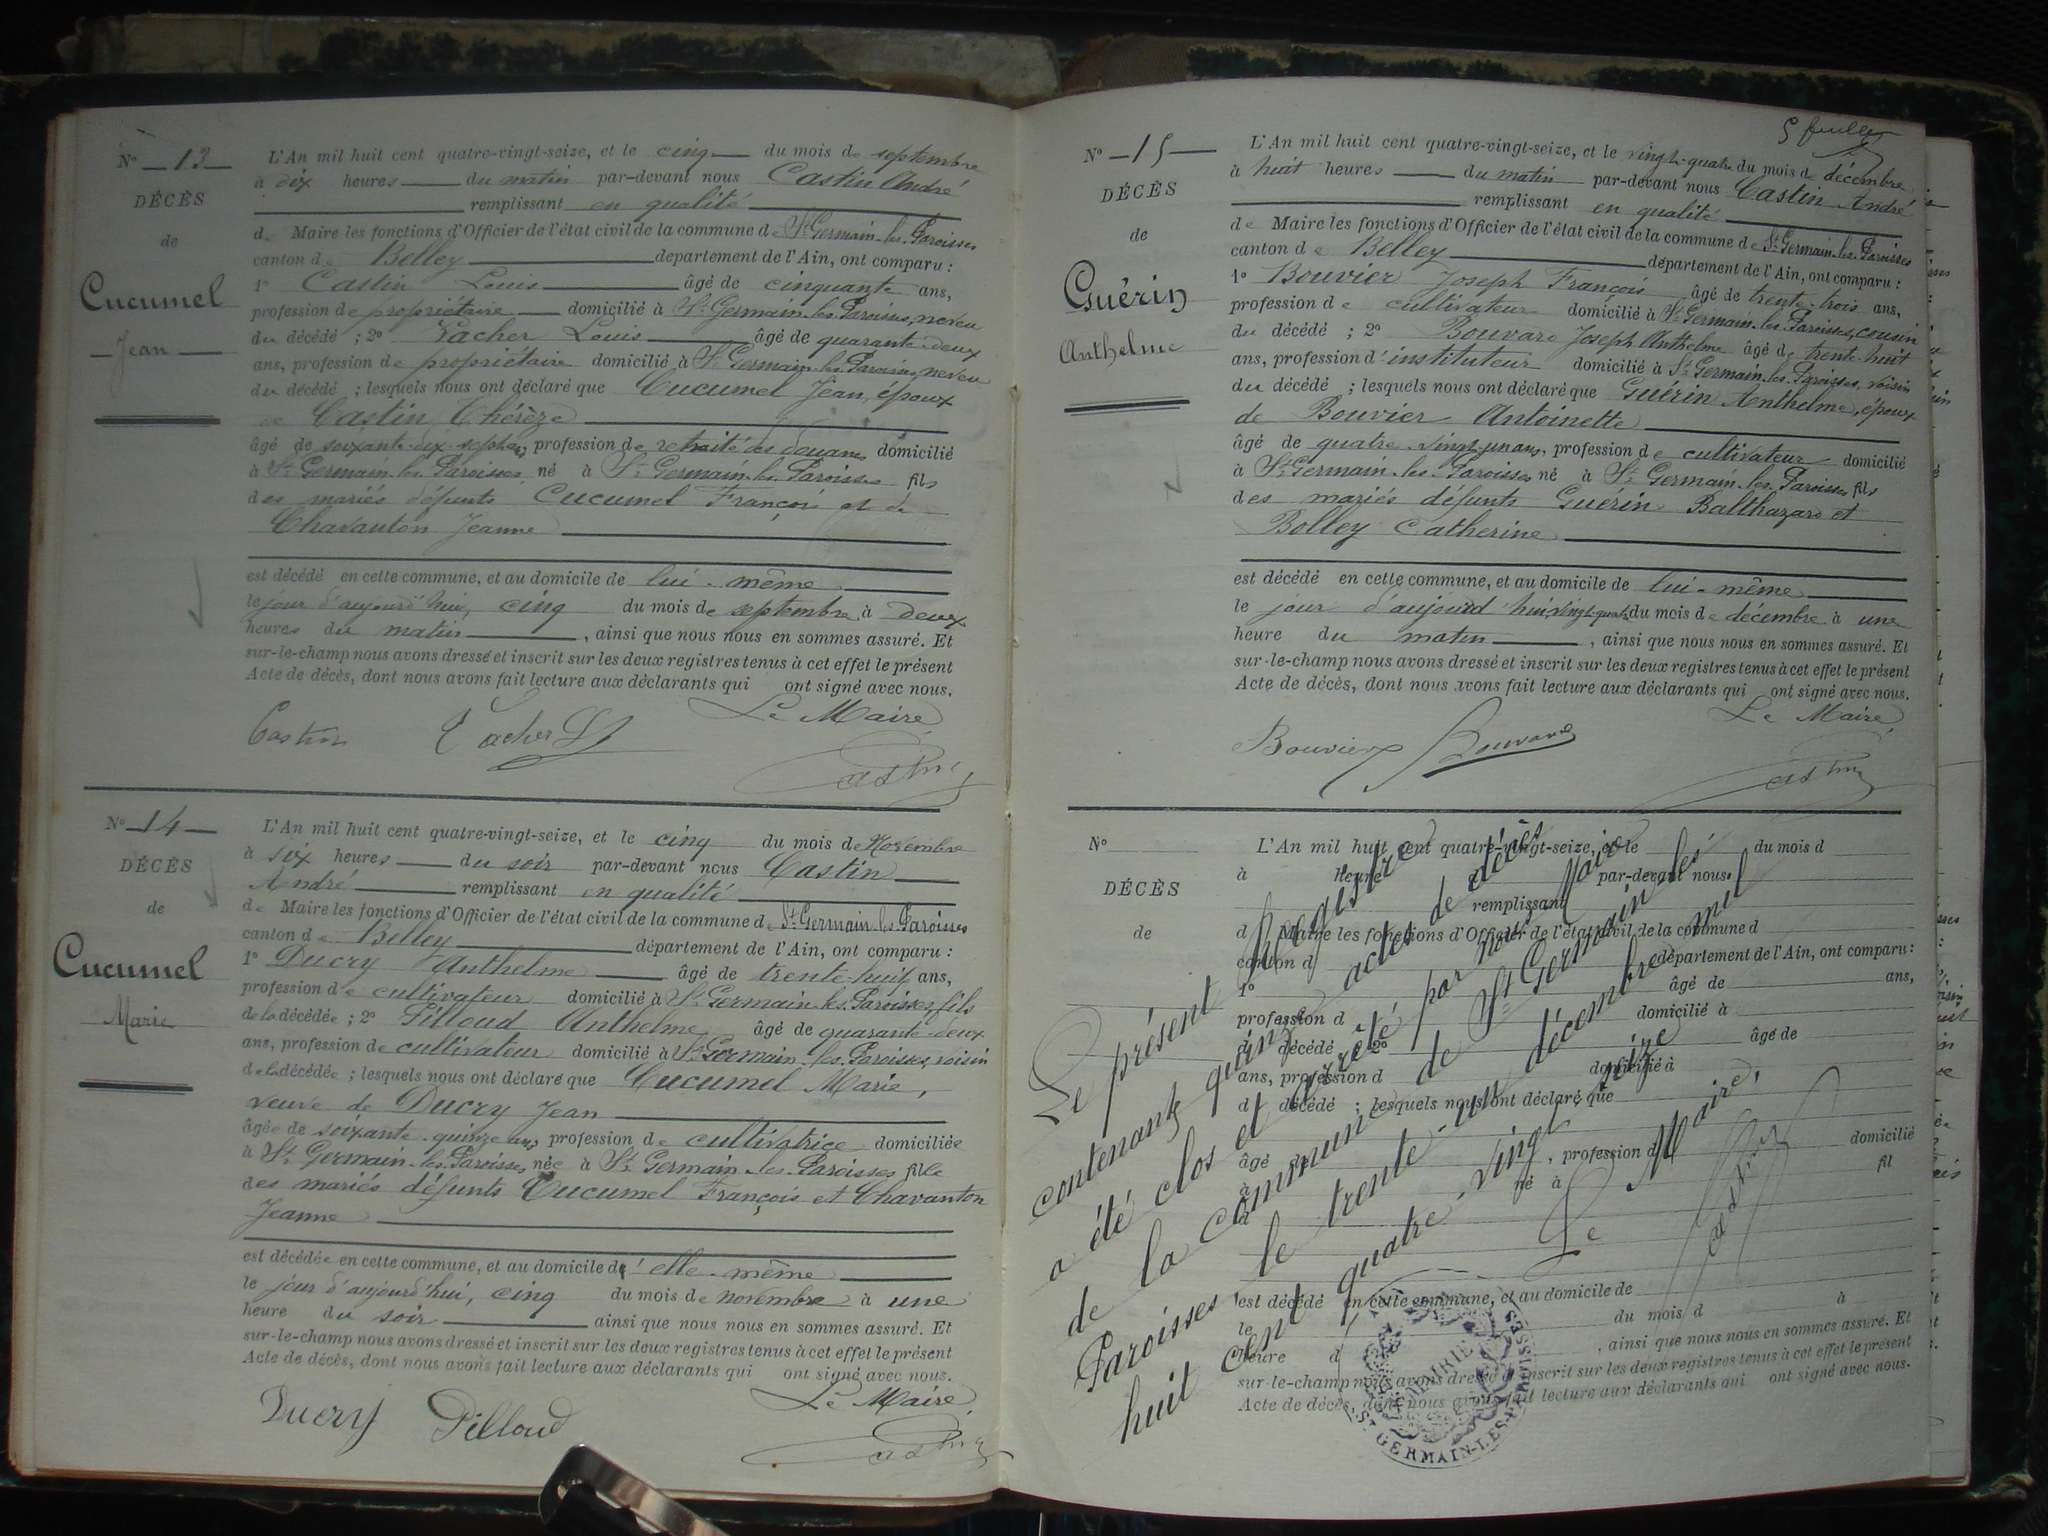 N° 13
DÉCÈS
de
Cucumel
Jean
L'An mil huit cent quatre-vingt-seize, et le cinq du mois de septembre
à dix heures du matin par-devant nous Castin André
remplissant en qualité
de Maire les fonctions d'Officier de l'état civil de la commune de St Germain-les-Paroisses
canton de Belley département de l'Ain, ont comparu :
1° Castin Louis âgé de cinquante ans,
profession de propriétaire domicilié à St Germain-les-Paroisses, neveu
du décédé ; 2° Vacher Louis âgé de quarante-deux
ans, profession de propriétaire domicilié à St Germain-les-Paroisses, neveu
du décédé ; lesquels nous ont déclaré que Cucumel Jean, époux
de Castin Thérèze
âgé de soixante-dix-sept ans, profession de retraité des douanes domicilié
à St Germain-les-Paroisses né à St Germain-les-Paroisses fils
des mariés défunts Cucumel François et de
Chavanton Jeanne
est décédé en cette commune, et au domicile de lui-même
le jour d'aujourd'hui, cinq du mois de septembre à deux
heures du matin, ainsi que nous nous en sommes assuré. Et
sur-le-champ nous avons dressé et inscrit sur les deux registres tenus à cet effet le présent
Acte de décès, dont nous avons fait lecture aux déclarants qui ont signé avec nous.
Le Maire
Castin Vacher L Castin
N° 14
DÉCÈS
de
Cucumel
Marie
L'An mil huit cent quatre-vingt-seize, et le cinq du mois de Novembre
à six heures du soir par-devant nous Castin
André remplissant en qualité
de Maire les fonctions d'Officier de l'état civil de la commune de St Germain-les-Paroisses
canton de Belley département de l'Ain, ont comparu :
1° Ducry Anthelme âgé de trente-huit ans,
profession de cultivateur domicilié à St Germain-les-Paroisses, fils
de la décédée ; 2° Pilloud Anthelme âgé de quarante-deux
ans, profession de cultivateur domicilié à St Germain-les-Paroisses, voisin
de la décédée ; lesquels nous ont déclaré que Cucumel Marie,
veuve de Ducry Jean
âgée de soixante-quinze ans, profession de cultivatrice domiciliée
à St Germain-les-Paroisses née à St Germain-les-Paroisses fille
des mariés défunts Cucumel François et Chavanton
Jeanne
est décédée en cette commune, et au domicile d'elle-même
le jour d'aujourd'hui, cinq du mois de novembre à une
heure du soir ainsi que nous nous en sommes assuré. Et
sur-le-champ nous avons dressé et inscrit sur les deux registres tenus à cet effet le présent
Acte de décès, dont nous avons fait lecture aux déclarants qui ont signé avec nous.
Le Maire
Ducry Pilloud Castin
5 feuilles
N° 15
DÉCÈS
de
Guérin
Anthelme
L'An mil huit cent quatre-vingt-seize, et le vingt-quatre du mois de décembre
à huit heures du matin par-devant nous Castin André
remplissant en qualité
de Maire les fonctions d'Officier de l'état civil de la commune de St Germain-les-Paroisses
canton de Belley département de l'Ain, ont comparu :
1° Bouvier Joseph François âgé de trente-trois ans,
profession de cultivateur domicilié à St Germain-les-Paroisses, cousin
du décédé ; 2° Bouvard Joseph Anthelme âgé de trente-huit
ans, profession d'instituteur domicilié à St Germain-les-Paroisses, voisin
du décédé ; lesquels nous ont déclaré que Guérin Anthelme, époux
de Bouvier Antoinette
âgé de quatre-vingt-un ans, profession de cultivateur domicilié
à St Germain-les-Paroisses né à St Germain-les-Paroisses fils
des mariés défunts Guérin Balthazard et
Bolley Catherine
est décédé en cette commune, et au domicile de lui-même
le jour d'aujourd'hui, vingt-quatre du mois de décembre à une
heure du matin, ainsi que nous nous en sommes assuré. Et
sur-le-champ nous avons dressé et inscrit sur les deux registres tenus à cet effet le présent
Acte de décès, dont nous avons fait lecture aux déclarants qui ont signé avec nous.
Le Maire
Bouvier Bouvard Castin
N°
DÉCÈS
de
L'An mil huit cent quatre-vingt-seize, et le du mois d
à heure par-devant nous
remplissant
d Maire les fonctions d'Officier de l'état civil de la commune d
canton d département de l'Ain, ont comparu :
1° âgé de ans,
profession d domicilié à
d décédé ; 2° âgé de
ans, profession d domicilié à
d décédé ; lesquels nous ont déclaré que
âgé de , profession d domicilié
à né à fil
d
est décédé en cette commune, et au domicile de
le du mois d à
heure d , ainsi que nous nous en sommes assuré. Et
sur-le-champ nous avons dressé et inscrit sur les deux registres tenus à cet effet le présent
Acte de décès, dont nous avons fait lecture aux déclarants qui ont signé avec nous.
Le présent Registre
contenant quinze actes de décès
a été clos et arrêté par nous Maire
de la commune de St Germain les
Paroisses le trente-un décembre mil
huit cent quatre-vingt-seize
Le Maire,
Castin
MAIRIE
ST GERMAIN-LES-PAROISSES